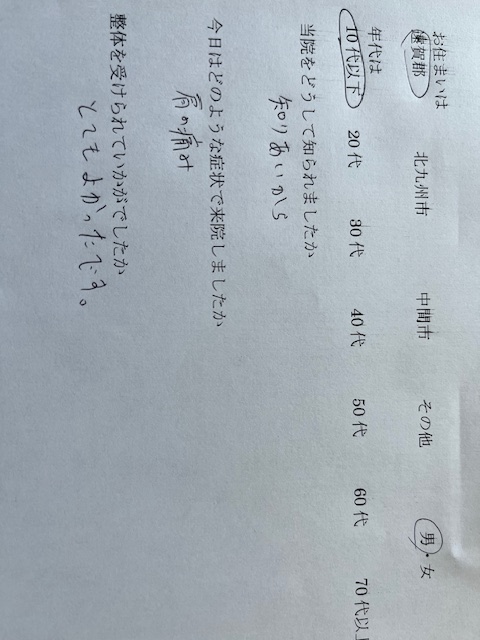 お住まいは
遠賀郡 北九州市 中間市 その他 男・女
年代は
10代以下 20代 30代 40代 50代 60代 70代以上
当院をどうして知られましたか
知りあいから
今日はどのような症状で来院しましたか
肩の痛み
整体を受けられていかがでしたか
とてもよかったです。